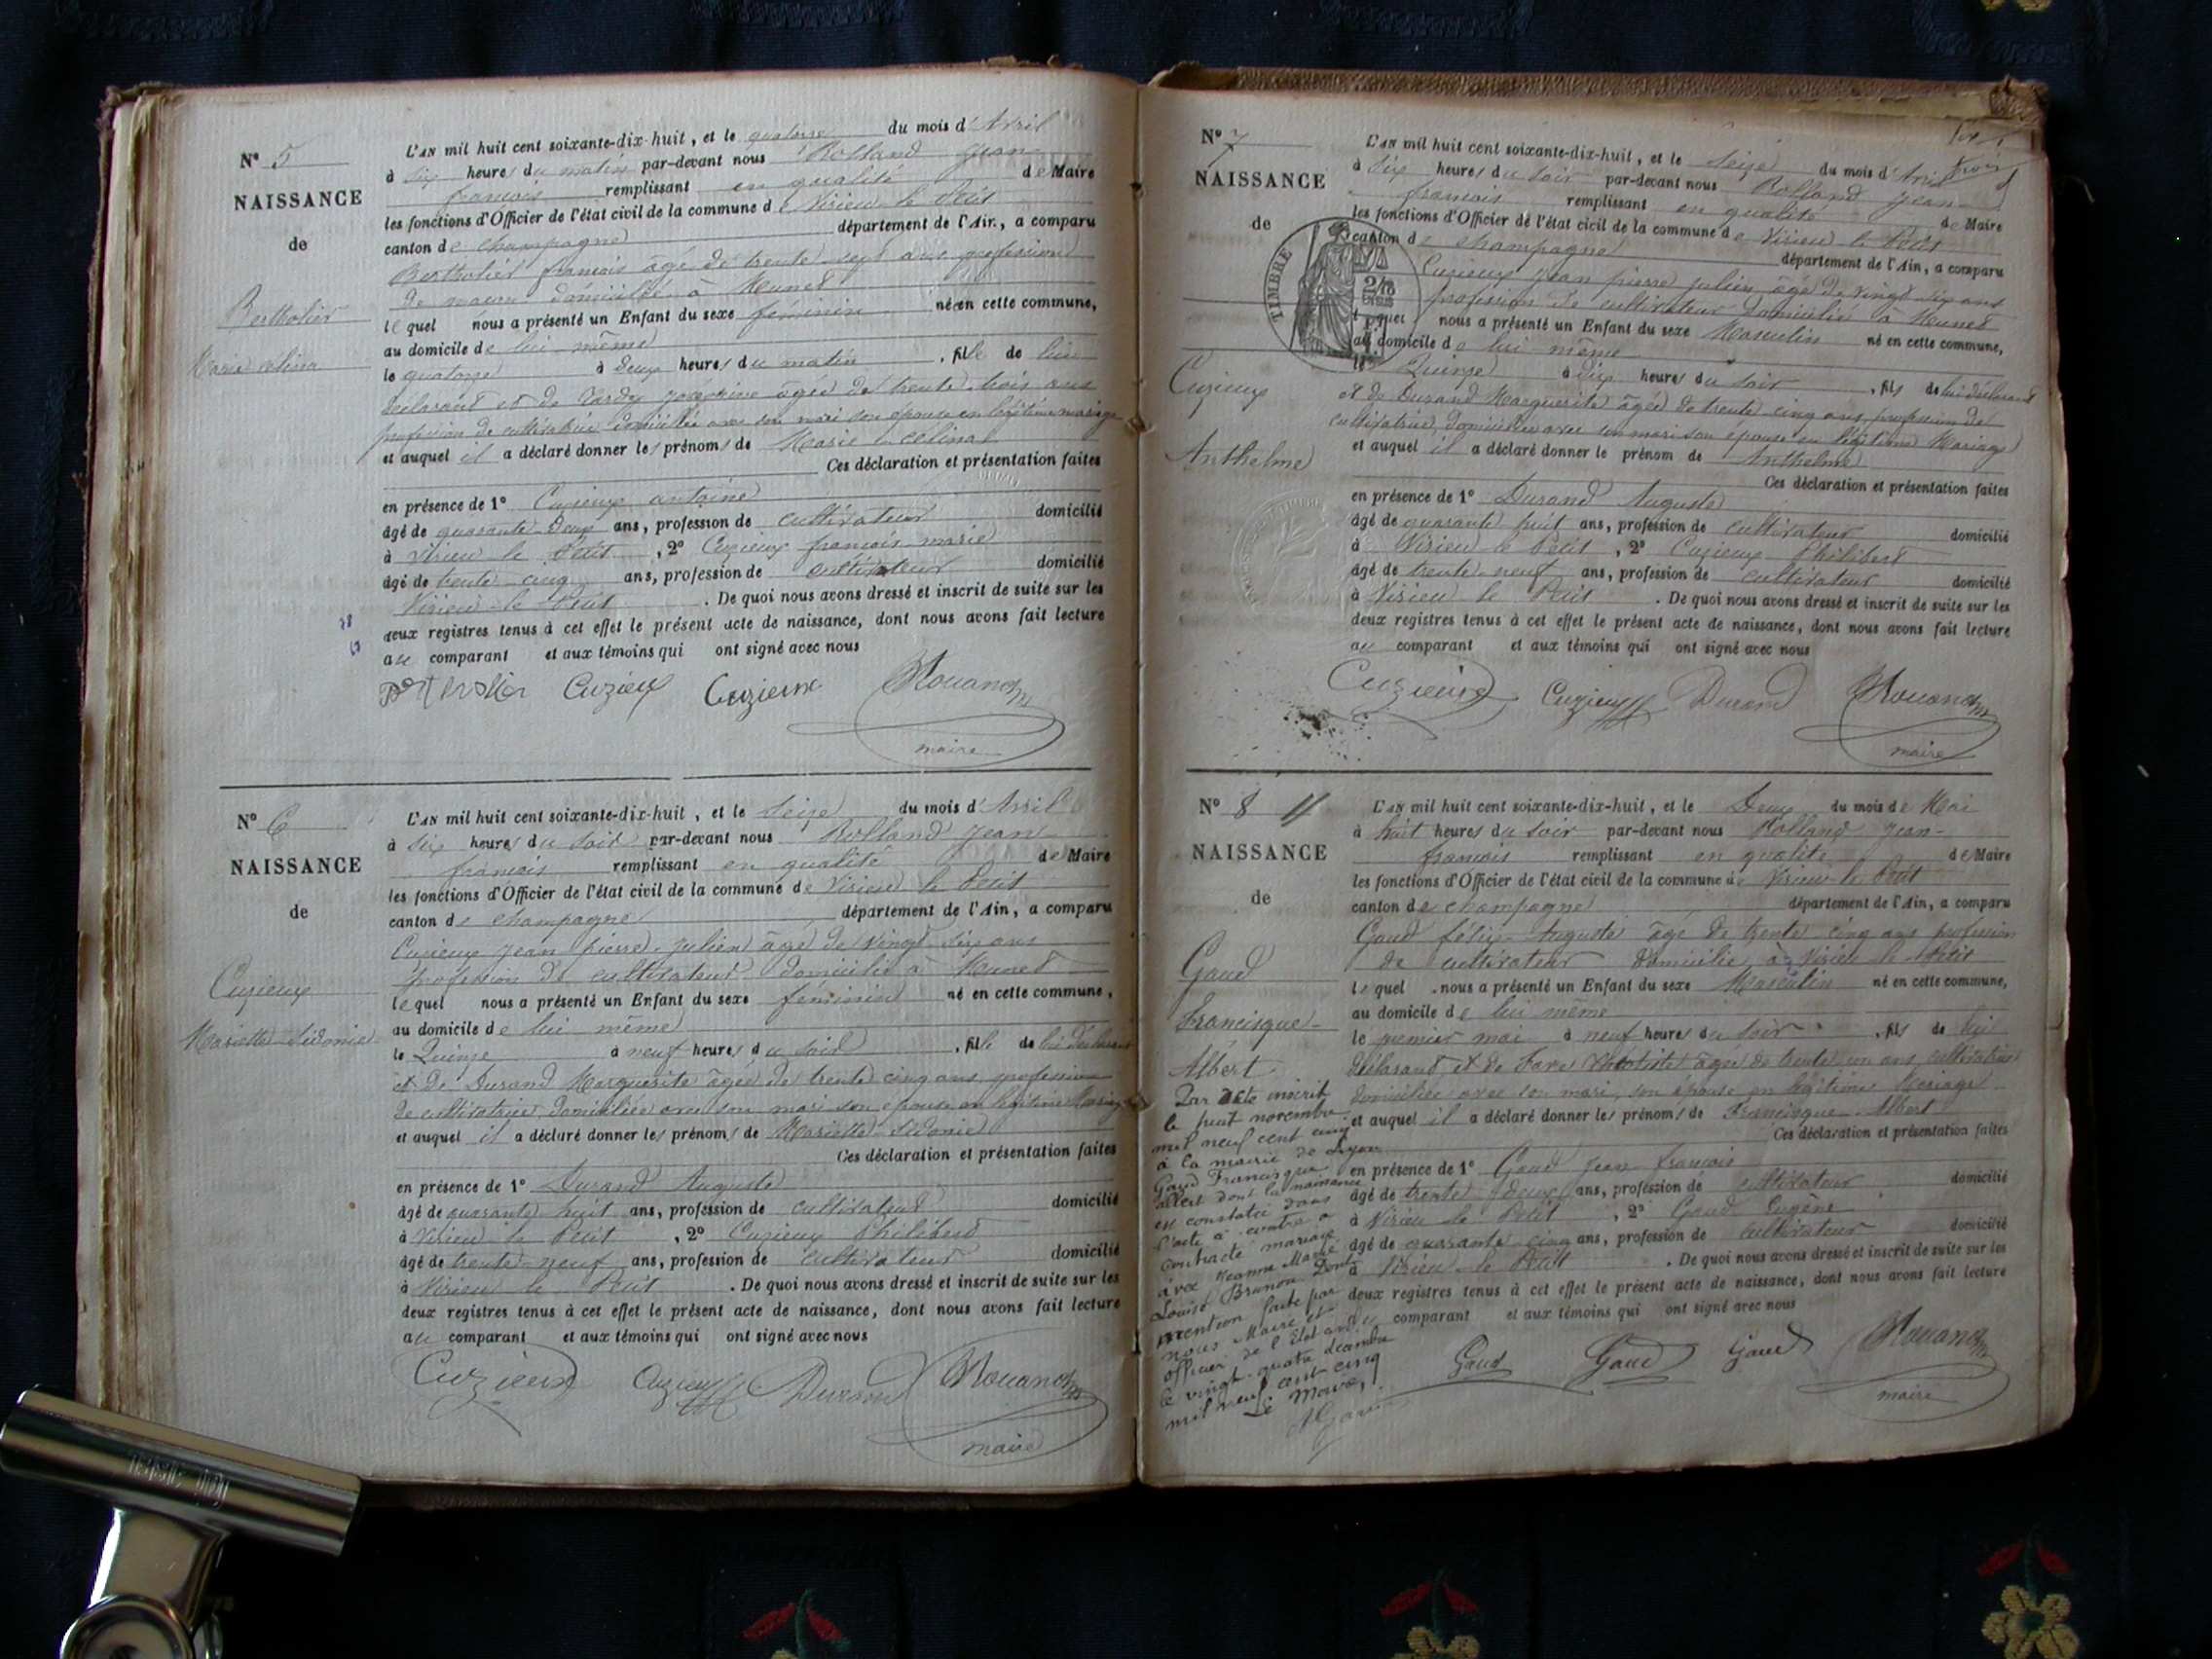 N° 5
NAISSANCE
de
Bertholier
Marie célina
L'AN mil huit cent soixante-dix-huit, et le quatorze du mois d'Avril
à six heures du matin par-devant nous Rolland Jean
francois remplissant en qualité de Maire
les fonctions d'Officier de l'état civil de la commune de Virieu le Petit
canton de champagne département de l'Air., a comparu
Bertholier francois âgé de trente sept ans profession
de macon domicilié à Munet
lequel nous a présenté un Enfant du sexe féminin né en cette commune,
au domicile de lui même
le quatorze à deux heures du matin, fille de lui
déclarant et de Tardy joséphine âgée de trente trois ans
profession de cultivatrice domiciliée avec son mari son épouse en légitime mariage
et auquel il a déclaré donner les prénoms de Marie célina
Ces déclaration et présentation faites
en présence de 1° Cuzieux antoine
âgé de quarante Deux ans, profession de cultivateur domicilié
à Virieu le Petit, 2° Cuzieux francois marie
âgé de trente cinq ans, profession de cultivateur domicilié
Virieu le Petit. De quoi nous avons dressé et inscrit de suite sur les
deux registres tenus à cet effet le présent acte de naissance, dont nous avons fait lecture
au comparant et aux témoins qui ont signé avec nous
Bertholier Cuzieux Cuzieux
maire
N° 6
NAISSANCE
de
Cuzieux
Mariette Sidonie
L'AN mil huit cent soixante-dix-huit, et le Seize du mois d'Avril
à six heures du soir par-devant nous Rolland Jean
francois remplissant en qualité de Maire
les fonctions d'Officier de l'état civil de la commune de Virieu le Petit
canton de champagne département de l'Ain, a comparu
Cuzieux Jean pierre Julien âgé de vingt six ans
profession de cultivateur domicilié à Munet
lequel nous a présenté un Enfant du sexe féminin né en cette commune,
au domicile de lui même
le Quinze à neuf heures du soir, fille de lui déclarant
et de Durand Marguerite âgée de trente cinq ans profession
de cultivatrice domiciliée avec son mari son épouse en légitime Mariage
et auquel il a déclaré donner les prénoms de Mariette Sidonie
Ces déclaration et présentation faites
en présence de 1° Durand Auguste
âgé de quarante huit ans, profession de cultivateur domicilié
à Virieu le Petit, 2° Cuzieux Philibert
âgé de trente neuf ans, profession de cultivateur domicilié
à Virieu le Petit. De quoi nous avons dressé et inscrit de suite sur les
deux registres tenus à cet effet le présent acte de naissance, dont nous avons fait lecture
au comparant et aux témoins qui ont signé avec nous
Cuzieux Cuzieux Durand
maire
N° 7
NAISSANCE
de
TIMBRE
Cuzieux
Anthelme
L'AN mil huit cent soixante-dix-huit, et le Seize du mois d'Avril
à six heures du soir par-devant nous Rolland Jean
francois remplissant en qualité de Maire
les fonctions d'Officier de l'état civil de la commune de Virieu le Petit
canton de champagne département de l'Ain, a comparu
Cuzieux Jean pierre julien âgé de vingt six ans
profession de cultivateur domicilié à Munet
lequel nous a présenté un Enfant du sexe Masculin né en cette commune,
au domicile de lui même
le Quinze à dix heures du soir, fils de lui déclarant
et de Durand Marguerite âgée de trente cinq ans profession de
cultivatrice, domiciliée avec son mari son épouse en légitime Mariage
et auquel il a déclaré donner le prénom de Anthelme
Ces déclaration et présentation faites
en présence de 1° Durand Auguste
âgé de quarante huit ans, profession de cultivateur domicilié
à Virieu le Petit, 2° Cuzieux Philibert
âgé de trente neuf ans, profession de cultivateur domicilié
à Virieu le Petit. De quoi nous avons dressé et inscrit de suite sur les
deux registres tenus à cet effet le présent acte de naissance, dont nous avons fait lecture
au comparant et aux témoins qui ont signé avec nous
Cuzieux Cuzieux Durand
maire
N° 8
NAISSANCE
de
Gaud
Francisque
Albert
Par acte inscrit
le huit novembre
mil neuf cent cinq
à la mairie de Lyon
Gaud Francisque
albert dont la naissance
est constatée dans
l'acte ci-contre a
contracté mariage
avec Jeanne Marie
Louise Brunon Dont
mention faite par
nous Maire et
officier de l'Etat civil
le vingt-quatre décembre
mil neuf cent cinq
Le Maire,
L'AN mil huit cent soixante-dix-huit, et le Deux du mois de Mai
à huit heures du soir par-devant nous Rolland Jean
francois remplissant en qualité de Maire
les fonctions d'Officier de l'état civil de la commune de Virieu le Petit
canton de champagne département de l'Ain, a comparu
Gaud félix Auguste âgé de trente cinq ans profession
de cultivateur domicilié à Virieu le Petit
lequel nous a présenté un Enfant du sexe Masculin né en cette commune,
au domicile de lui même
le premier mai à neuf heures du soir, fils de lui
déclarant et de Favre âgée de trente un ans cultivatrice
domiciliée avec son mari, son épouse en légitime Mariage
et auquel il a déclaré donner les prénoms de Francisque Albert
Ces déclaration et présentation faites
en présence de 1° Gaud Jean francois
âgé de trente deux ans, profession de cultivateur domicilié
à Virieu le Petit, 2° Gaud Eugène
âgé de quarante cinq ans, profession de cultivateur domicilié
à Virieu le Petit. De quoi nous avons dressé et inscrit de suite sur les
deux registres tenus à cet effet le présent acte de naissance, dont nous avons fait lecture
au comparant et aux témoins qui ont signé avec nous
Gaud Gaud Gaud
maire